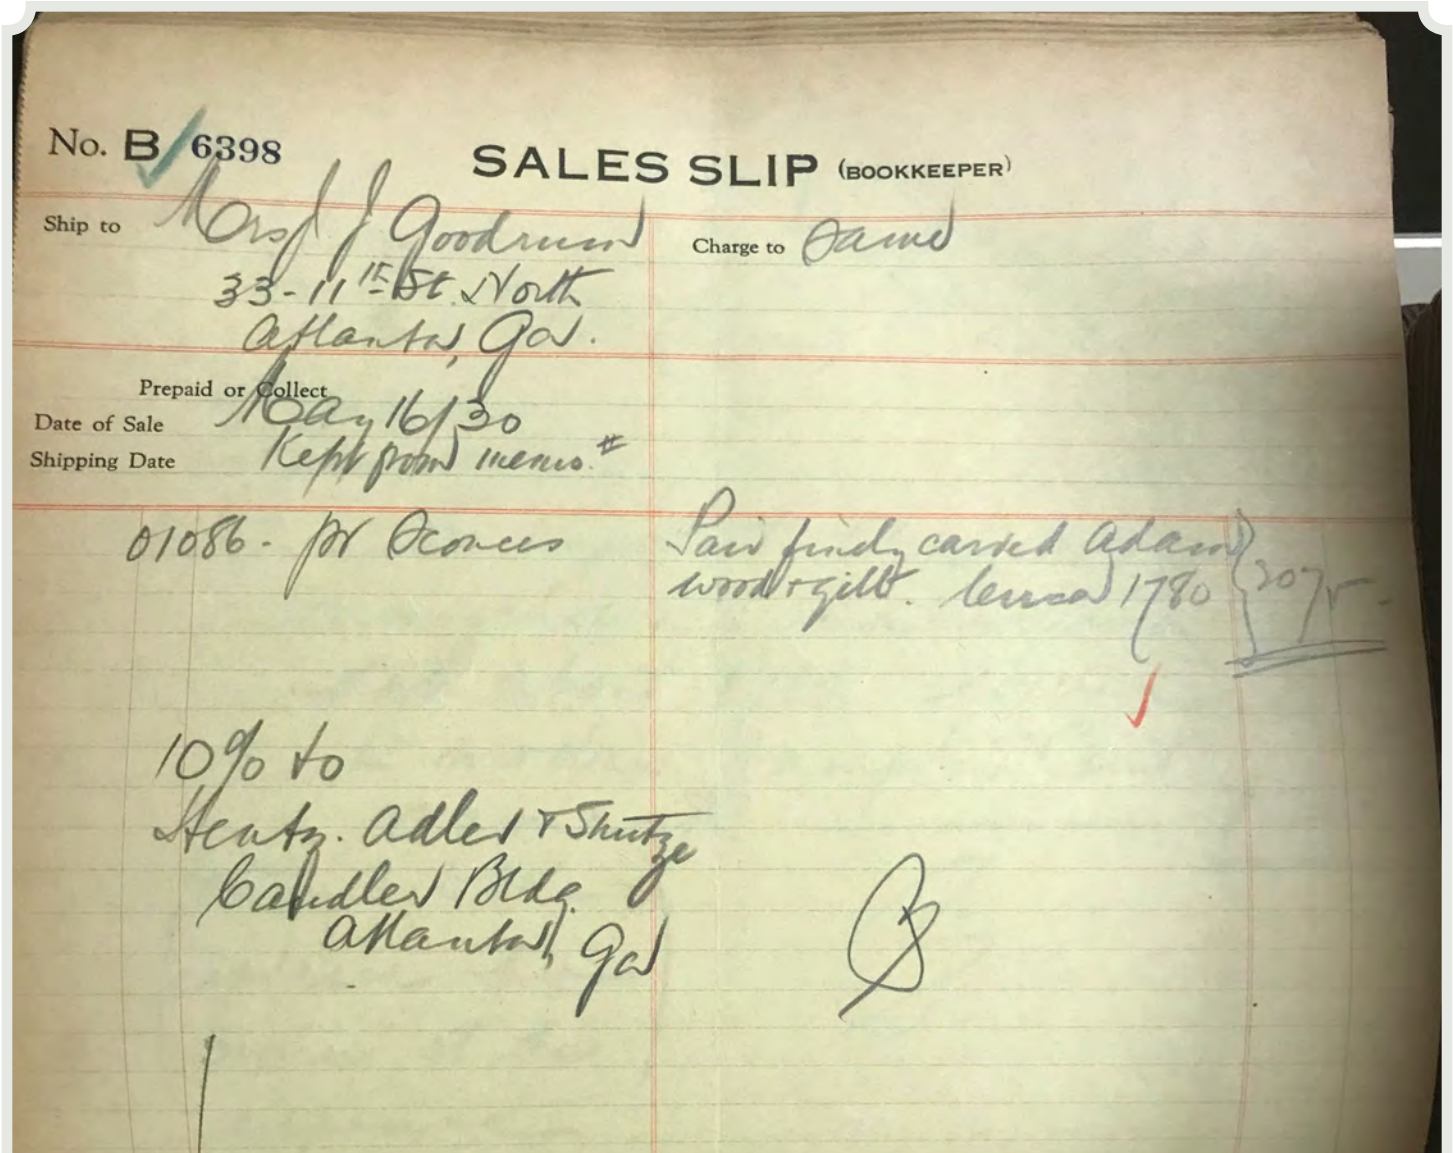 No. B 6398
SALES SLIP (BOOKKEEPER)
Ship to Mrs J J Goodrum
33-11th St. North
Atlanta, Ga.
Charge to Same
Prepaid or Collect
Date of Sale May 16/30
Shipping Date Kept from memo. #
01086 - pr Sconces
Pair finely carved Adam
wood + gilt. Circa 1780
10% to
Hentz. Adler & Shutze
Candler Bldg.
Atlanta, Ga